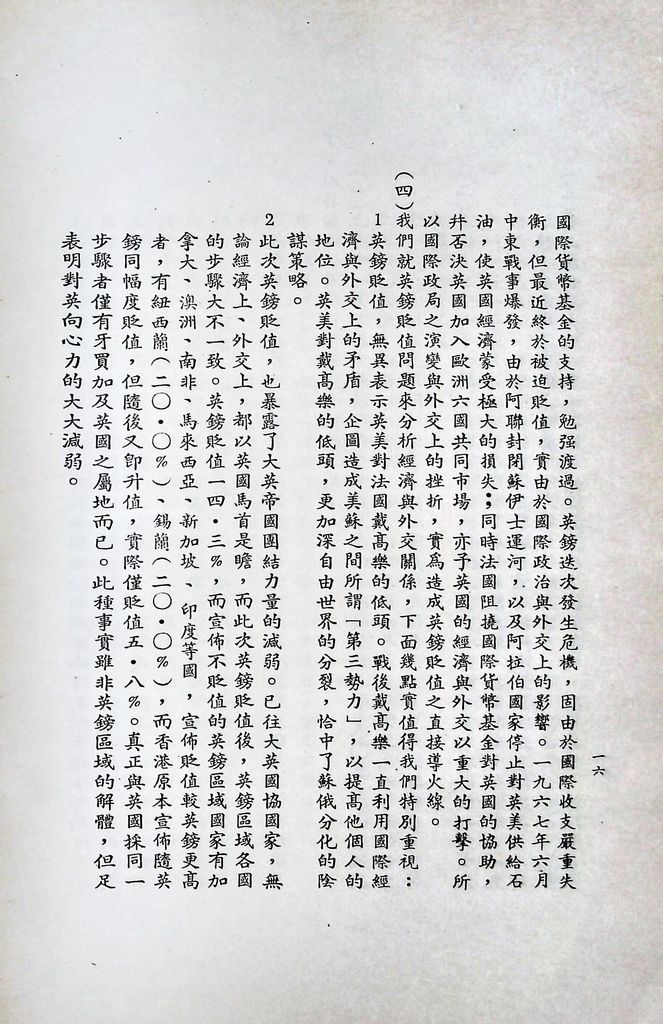 國際貨幣基金的支持，勉强渡過。英鎊迭次發生危機，固由於國際收支嚴重失
衡，但最近終於被迫貶值，實由於國際政治與外交上的影響。一九六七年六月
中東戰事爆發，由於阿聯封閉蘇伊士運河，以及阿拉伯國家停止對英美供給石
油，使英國經濟蒙受極大的損失；同時法國阻撓國際貨幣基金對英國的協助，
幷否決英國加入歐洲六國共同市場，亦予英國的經濟與外交以重大的打擊。所
以國際政局之演變與外交上的挫折，實爲造成英鎊貶值之直接導火線。
（四）我們就英鎊貶值問題來分析經濟與外交關係，下面幾點實值得我們特別重視：
1英鎊貶值，無異表示英美對法國戴高樂的低頭。戰後戴高樂一直利用國際經
濟與外交上的矛盾，企圖造成美蘇之間所謂「第三勢力」，以提高他個人的
地位。英美對戴高樂的低頭，更加深自由世界的分裂，恰中了蘇俄分化的陰
謀策略。
2此次英鎊貶值，也暴露了大英帝國團結力量的減弱。已往大英國協國家，無
論經濟上、外交上，都以英國馬首是瞻，而此次英鎊貶值後，英鎊區域各國
的步驟大不一致。英鎊貶值一四·三％，而宣佈不貶值的英鎊區域國家有加
拿大、澳洲、南非、馬來西亞、新加坡、印度等國，宣佈貶值較英鎊更高
者，有紐西蘭（二〇·〇％）、錫蘭（二〇·〇％），而香港原本宣佈隨英
鎊同幅度貶值，但隨後又卽升值，實際僅貶值五·八％。真正與英國採同一
步驟者僅有牙買加及英國之屬地而已。此種事實雖非英鎊區域的解體，但足
表明對英向心力的大大減弱。
一六